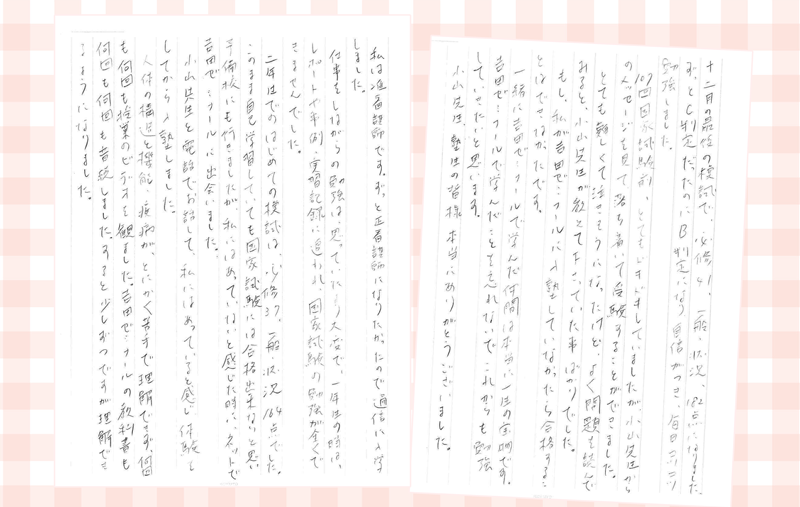 私は准看護師です。ずっと正看護師になりたかったので通信に入学
しました。
仕事をしながらの勉強は、思っていたより大変で、一年生の時は、
レポートや事例、実習記録に追われ、国家試験の勉強が全くで
きませんでした。
二年生でのはじめての模試は、必修37、一般・状況164点でした。
このまま自己学習していても国家試験には合格出来ないと思い
予備校にも行きましたが、私にはあっていないと感じた時に、ネットで
吉田ゼミナールに出会いました。
小山先生と電話でお話して、私にはあっていると感じ、体験を
してから入塾しました。
人体の構造と機能、疾病が、とにかく苦手で理解できず、何回
も何回も授業のビデオを観ました。吉田ゼミナールの教科書も
何回も何回も音読しました。すると少しずつですが理解でき
るようになりました。
十二月の最後の模試で、必修41、一般・状況、182点になりました。
ずっとC判定だったのにB判定になり自信がつき、毎日コツコツ
勉強しました。
107回国家試験前、とてもドキドキしていましたが、小山先生から
のメッセージを見て落ち着いて受験することができました。
とても難しくて泣きそうになったけど、よく問題を読んで
みると、小山先生が教えて下さっていた事ばかりでした。
もし、私が吉田ゼミナールに入塾していなかったら合格するこ
とはできなかったです。
一緒に吉田ゼミナールで学んだ仲間は本当に一生の宝物です。
吉田ゼミナールで学んだことを忘れないで、これからも勉強
していきたいと思います。
小山先生、塾生の皆様、本当にありがとうございました。